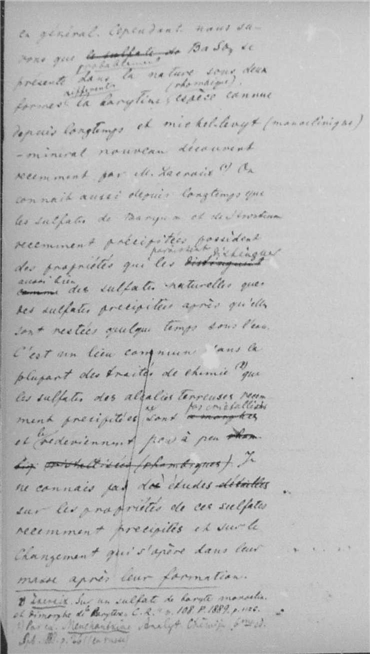 en général. Cependant nous sa-
vons que le sulfate de BaSO4 se
probablement
présente dans la nature sous deux
différentes (rhombique)
formes la barytine, espèce connue
depuis longtemps et michel-levyt (monoclinique)
– minéral nouveau découvert
recemment par M. Lacroix (1) On
connait aussi depuis longtemps que
les sulfates de Baryum et de Strontium
recemment précipitées possèdent
des propriétés qui les distinguent
aussi bien
comme des sulfates naturelles que
des sulfates precipités après qu'elles
sont restées quelque temps sous l'eau.
C'est un lieu commun dans la
plupart des traités de chimie (2) que
les sulfates des alcalis terreuses recem-
ment precipitées sont amorphes
pas cristallisés
et redeviennent peu à peu
cristallisés (rhombiques). Je
ne connais pas des études détaillées
sur les propriétés de ces sulfates
recemment precipités et sur le
Changement qui s'opère dans leur
masse après leur formation.
1) Lacroix. Sur un sulfate de baryte monoclin.
et dimorphe de barytine. C. R. 108. P. 1889. p.
2) Menchoutkine. Analyt. Chemie.